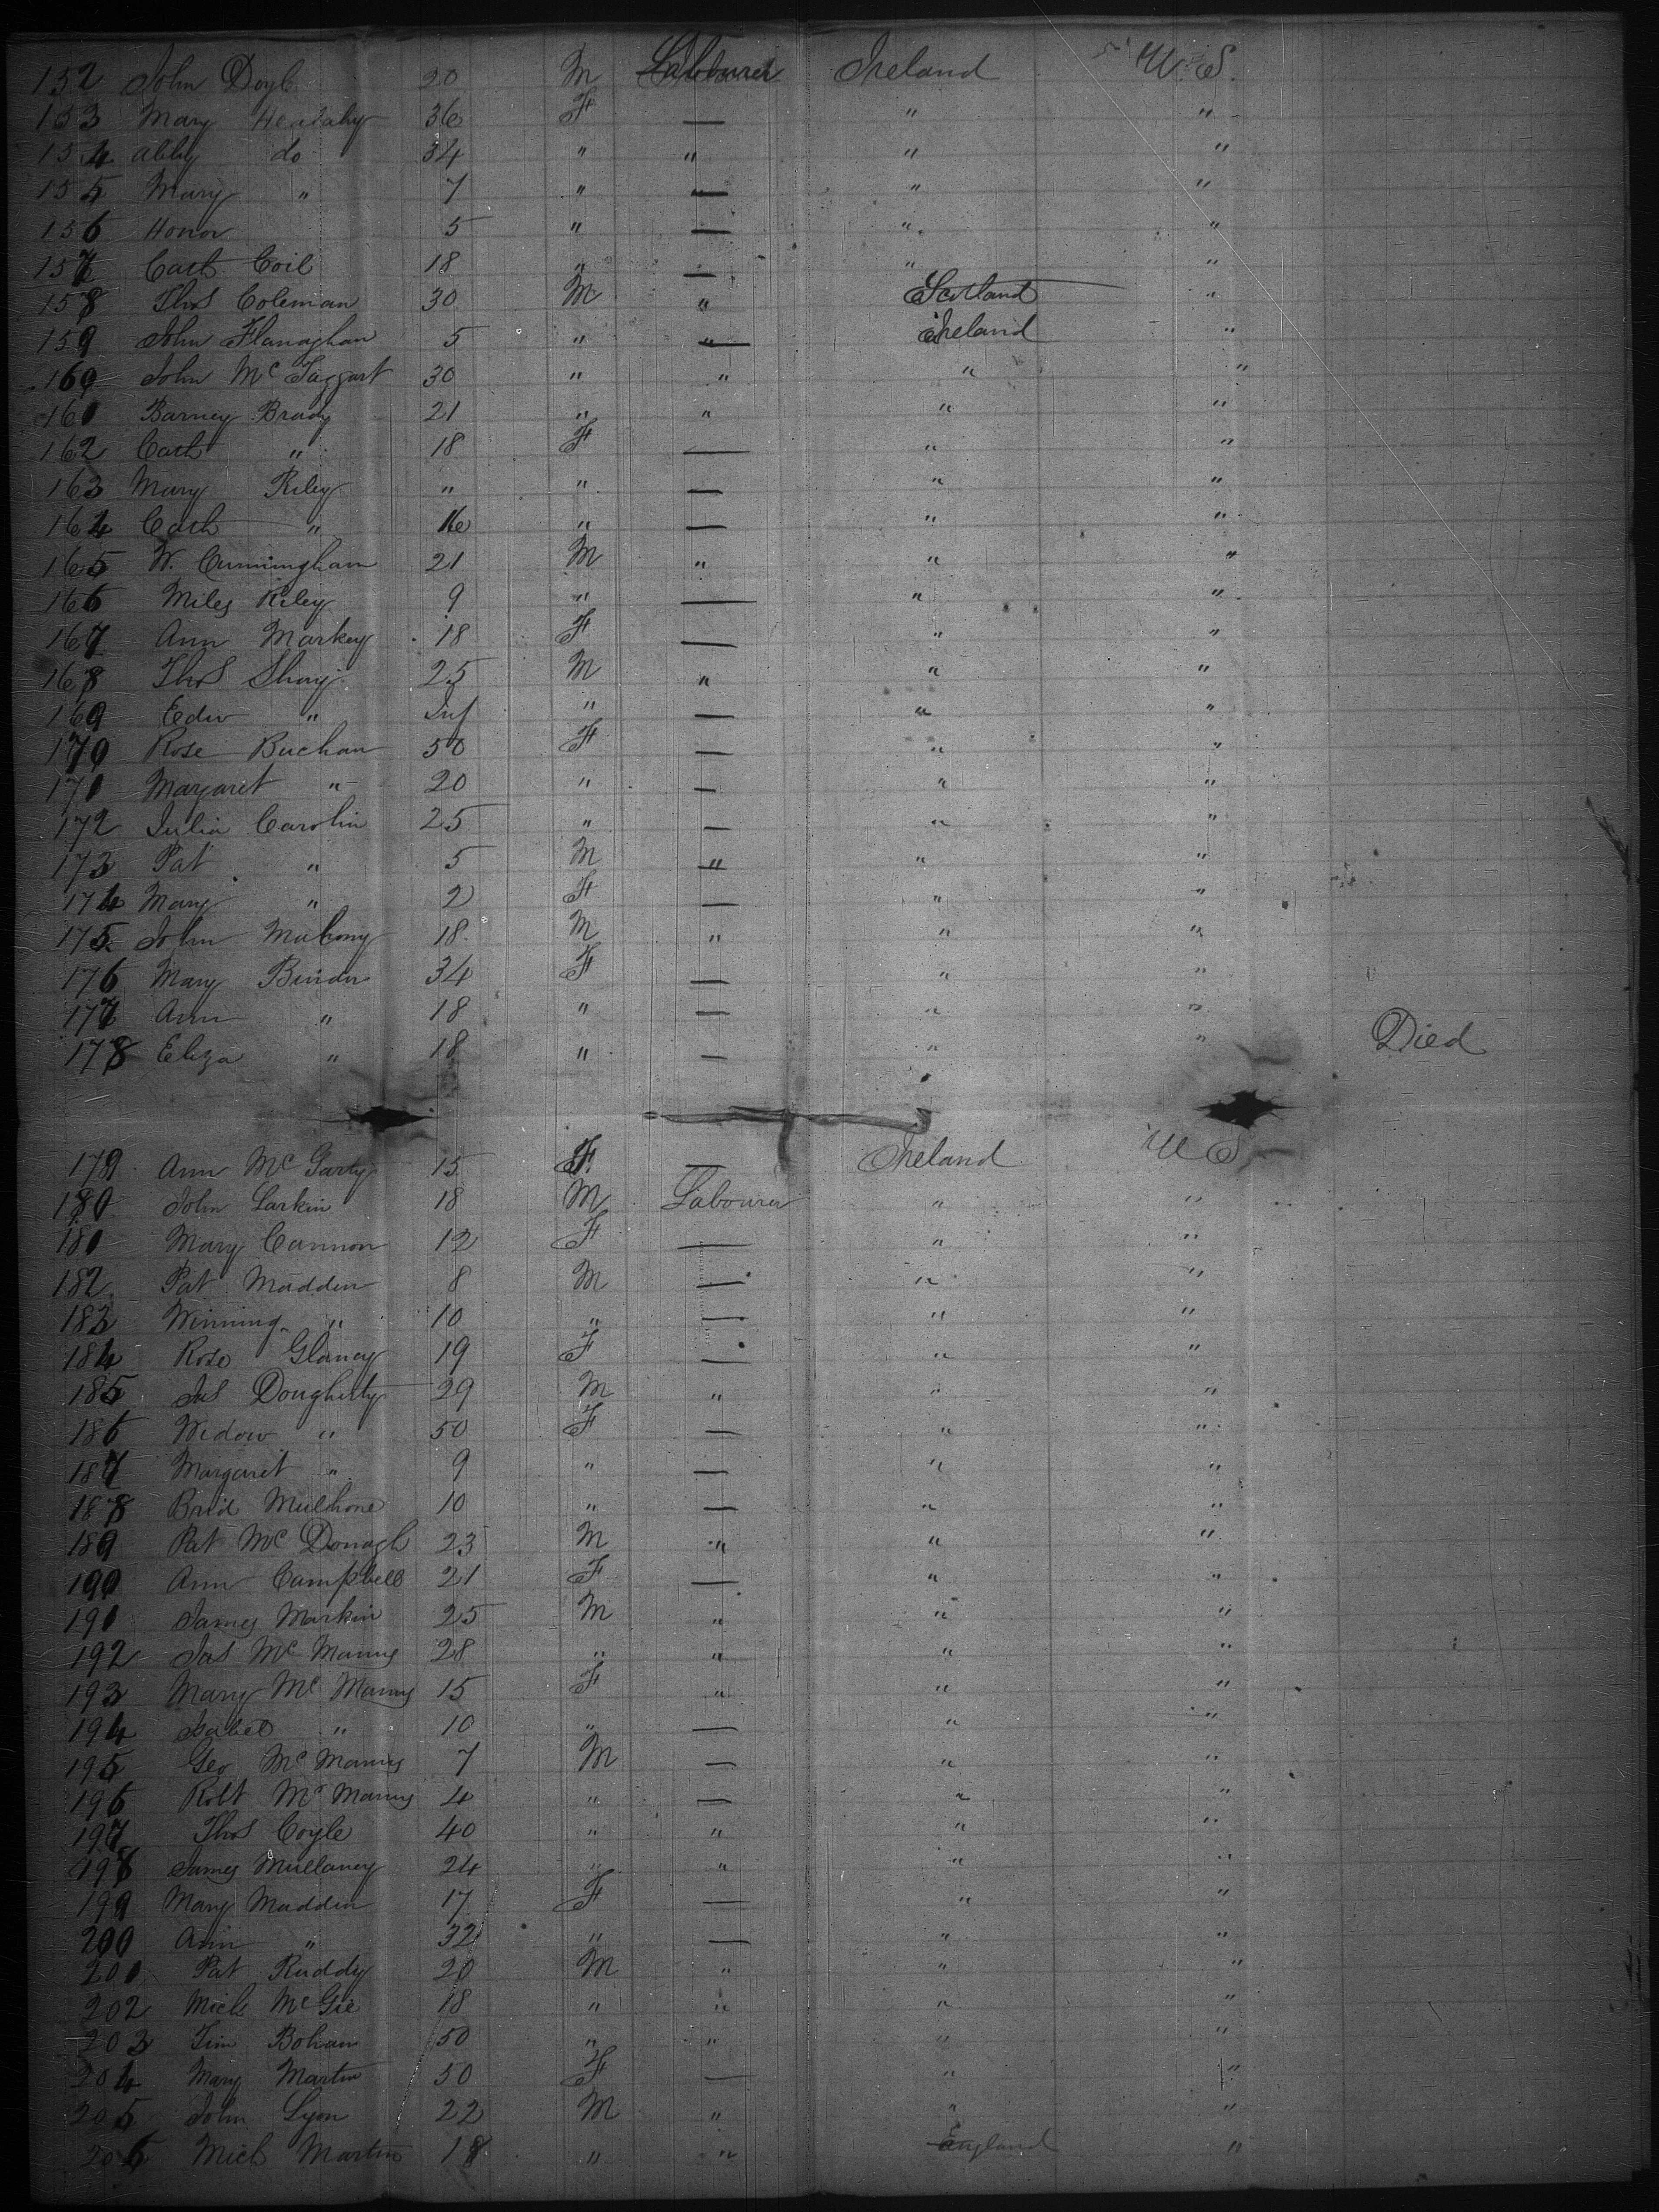 152 John Doyle 20 M Labourer Ireland U.S.
153 Mary Healahy 36 F — " "
154 Abby do 34 " " " "
155 Mary " 7 " — " "
156 Honor 5 " — " "
157 Cath Coil 18 " — " "
158 Thos Coleman 30 M " Scotland "
159 John Flanaghan 5 " " Ireland "
160 John McTaggart 30 " " " "
161 Barney Brady 21 " " " "
162 Cath " 18 F — " "
163 Mary Riley " " — " "
164 Cath " 16 " — " "
165 W. Cunningham 21 M " " "
166 Miles Riley 9 " — " "
167 Ann Markey 18 F — " "
168 Thos 25 M " " "
169 Edw " Inf " — " "
170 Rose Buchan 50 F — " "
171 Margaret " 20 " — " "
172 Julia Carolin 25 " — " "
173 Pat " 5 M " " "
174 Mary " 2 F — " "
175 John Mahony 18 M " " "
176 Mary Binder 34 F — " "
177 Ann " 18 " — " "
178 Eliza " 18 " — " " Died
179 Ann McGarty 15 F. — Ireland U S
180 John Larkin 18 M Labourer " "
181 Mary Cannon 12 F — " "
182 Pat Madden 8 M — " "
183 Winning " 10 " — " "
184 Rose Glancy 19 F — " "
185 Jas Dougherty 29 M " " "
186 Widow " 50 F — " "
187 Margaret " 9 " — " "
188 Brid Mulhone 10 " — " "
189 Pat McDonagh 23 M " " "
190 Ann Campbell 21 F — " "
191 James Markin 25 M " " "
192 Jas McManus 28 " " " "
193 Mary McManus 15 F " " "
194 Isabel " 10 " — " "
195 Geo McManus 7 M — " "
196 Robt McManus 4 " — " "
197 Thos Coyle 40 " " " "
198 James Mullaney 24 " " " "
199 Mary Madden 17 F — " "
200 Ann " 32 " — " "
201 Pat Ruddy 20 M " " "
202 Mich McGee 18 " " " "
203 Tim Bohan 50 " " " "
204 Mary Martin 50 F — " "
205 John Lyon 22 M " " "
206 Mich Martin 18 " " England "